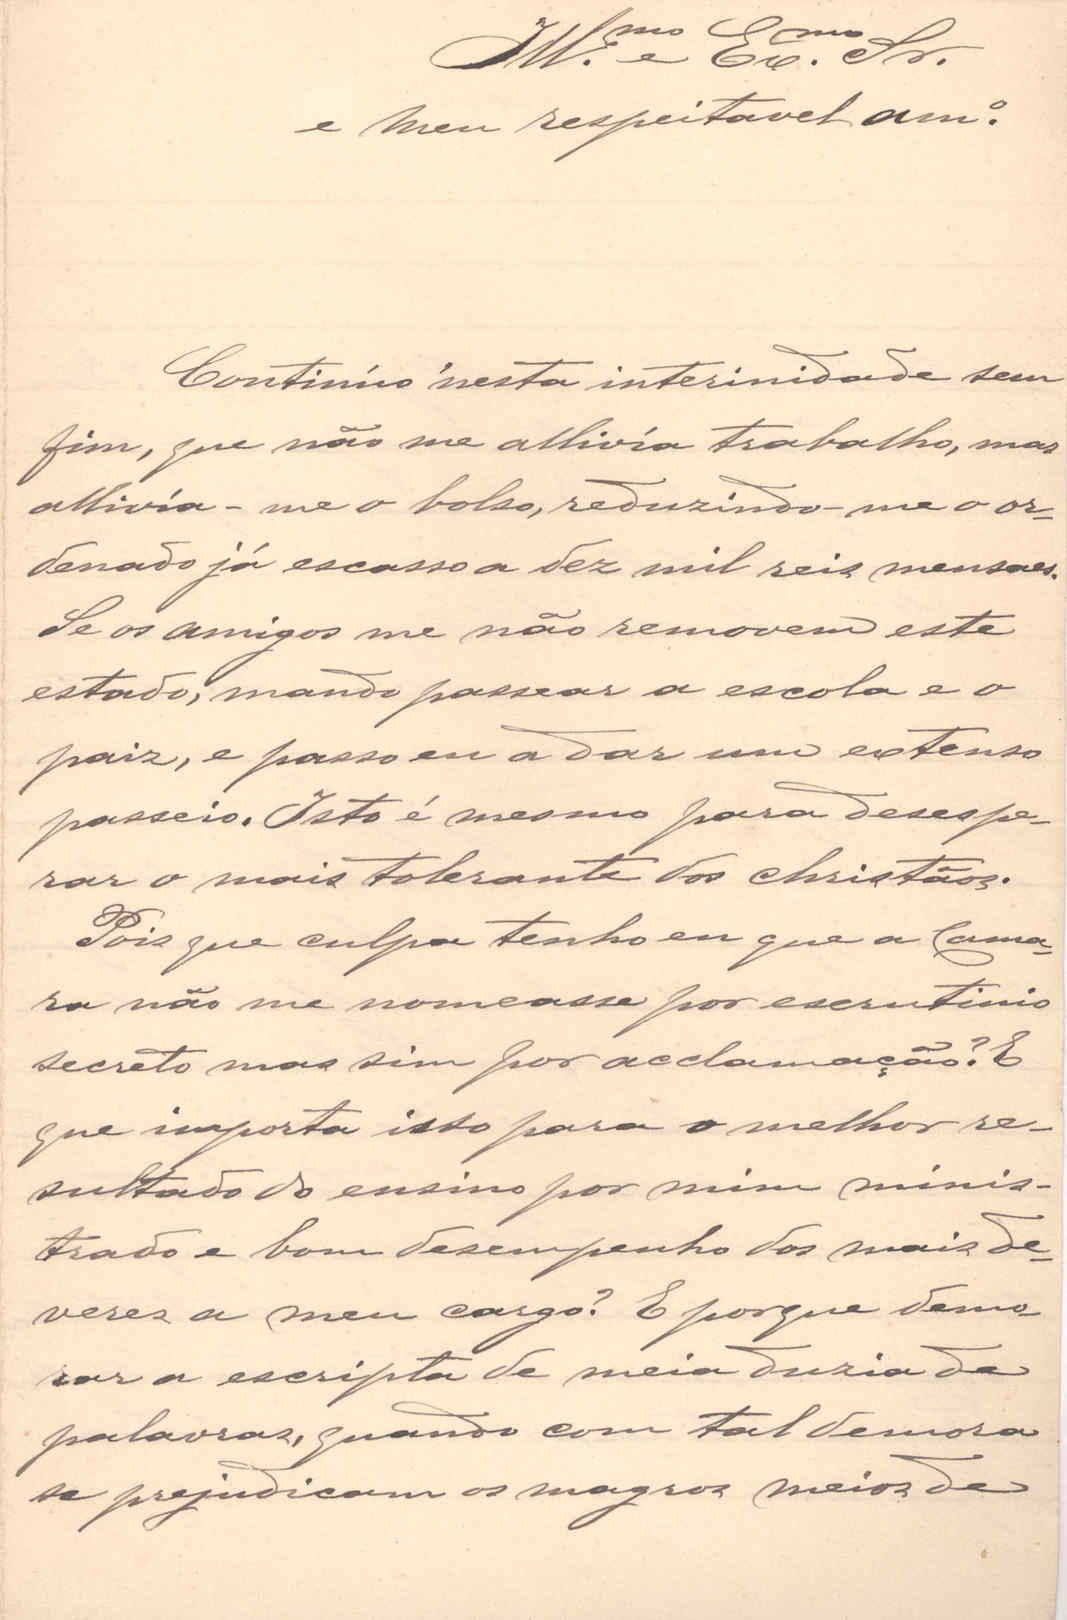 Ill.mo e Ex.mo Sr.
e meu respeitavel am.o
Continúo n'esta interinidade sem
fim, que não me allivía trabalho, mas
allivía-me o bolso, reduzindo-me o or-
denado já escasso a dez mil reis mensaes.
Se os amigos me não removem este
estado, mando passear a escola e o
paiz, e passo eu a dar um extenso
passeio. Isto é mesmo para desespe-
rar o mais tolerante dos christãos.
Pois que culpa tenho eu que a Cama-
ra não me nomeasse por escrutinio
secreto mas sim por acclamação? E
que importa isso para o melhor re-
sultado do ensino por mim minis-
trado e bom desempenho dos mais de-
veres a meu cargo? E porque demo-
rar a escripta de meia duzia de
palavras, quando com tal demora
se prejudicam os magros meios de